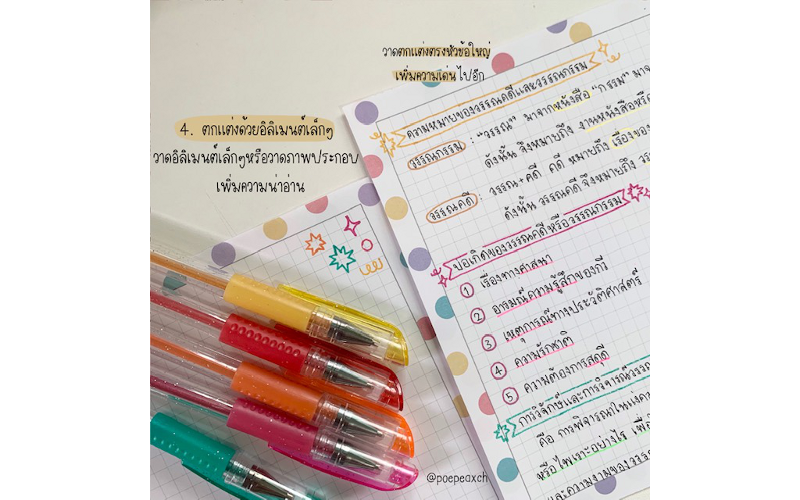 วาดตกแต่งตรงหัวข้อใหญ่
เพิ่มความเด่นไปอีก
4. ตกแต่งด้วยอิลิเมนต์เล็กๆ
วาดอิลิเมนต์เล็กๆหรือวาดภาพประกอบ
เพิ่มความน่าอ่าน
ความหมายของวรรณคดีและวรรณกรรม
วรรณกรรม : "วรรณ" มาจากหนังสือ "กรรม" มาจ
ดังนั้น จึงหมายถึง งานหนังสือหรื
วรรณคดี : วรรณ+คดี คดี หมายถึง เรื่องของ
ดังนั้น วรรณคดี จึงหมายถึง ว
บ่อเกิดของวรรณคดีหรือวรรณกรรม
1 เรื่องทางศาสนา
2 อารมณ์ความรู้สึกของกวี
3 เหตุการณ์ทางประวัติศาสตร์
4 ความรักชาติ
5 ความต้องการสดุดี
การวิจักษ์และการวิจารณ์วรรณ
คือ การพิจารณาในแง่คว
หรือไพเราะอย่างไร เพื่อ
และความงามของวรรณ
@poepeaxch